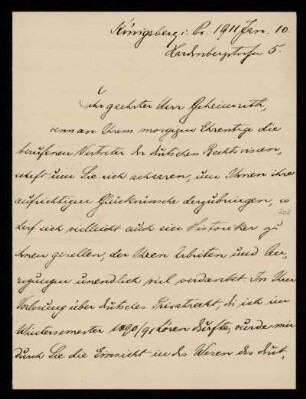 Königsberg i. Pr. 1911 Jan. 10.
Hardenbergstraße 5.
Sehr geehrter Herr Geheimrath,
wenn an Ihrem morgigen Ehrentage die
berufenen Vertreter der deutschen Rechtswissen-
schaft um Sie sich scharen, um Ihnen ihre
aufrichtigen Glückwünsche darzubringen, so
darf sich vielleicht auch ein Historiker zu
ihnen gesellen, der Ihren Arbeiten und An-
regungen unendlich viel verdankt. In Ihrer
Vorlesung über deutsches Privatrecht, die ich im
Wintersemester 1890/91 hören durfte, wurde mir
durch Sie die Einsicht in das Wesen des deut-